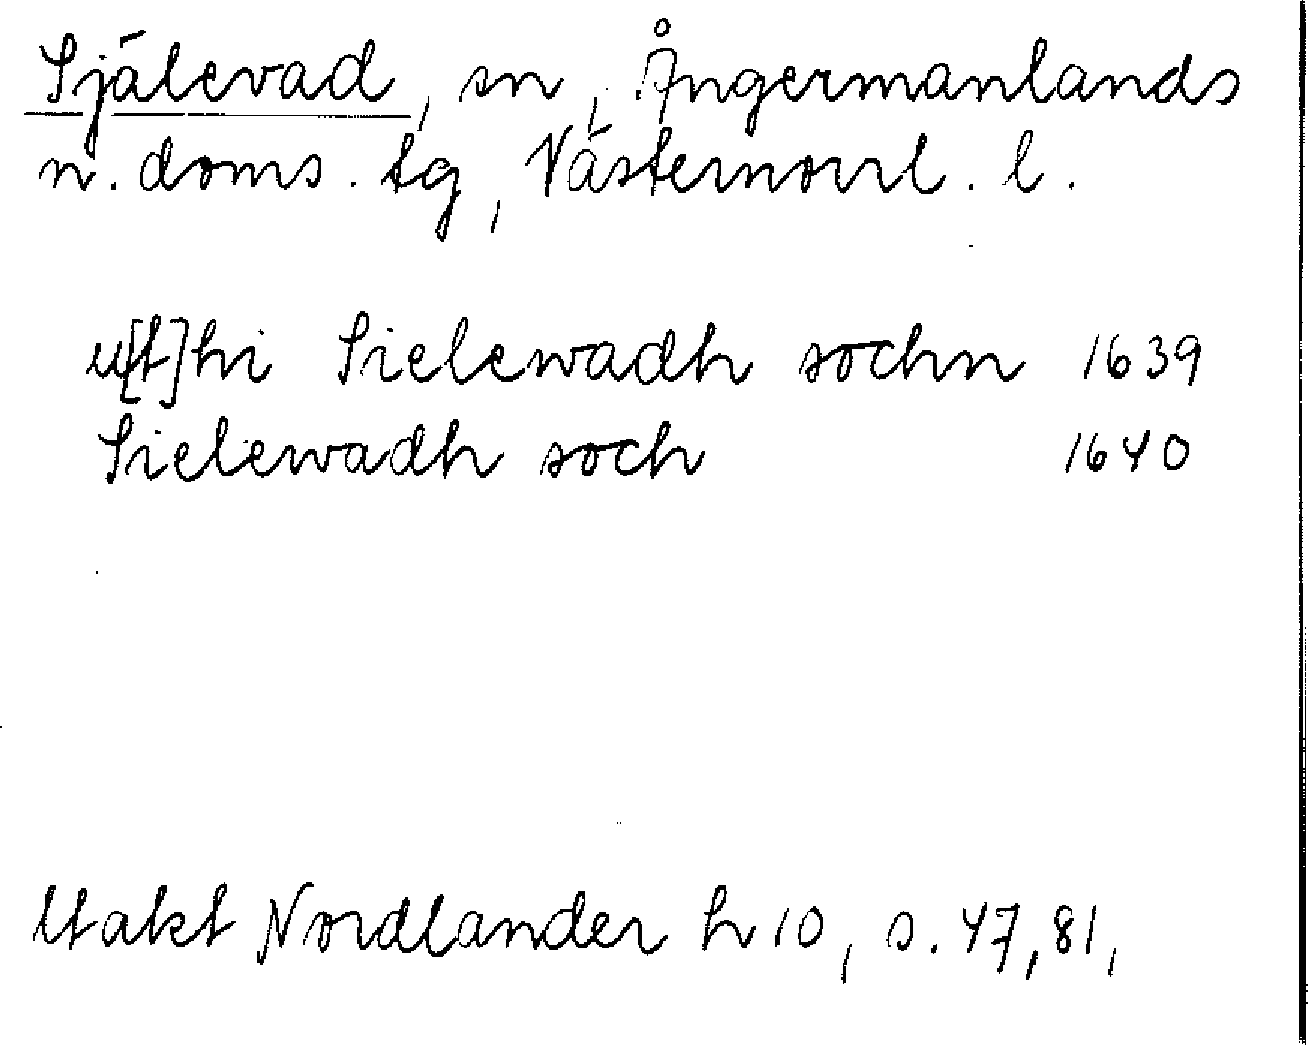 Själevad, sn, Ångermanlands
n. doms. tg, Västernorrl. l.
u[t]hi Sielewadh sochn 1639
Sielewadh soch 1640
Utakt Nordlander h 10, s. 47, 81,